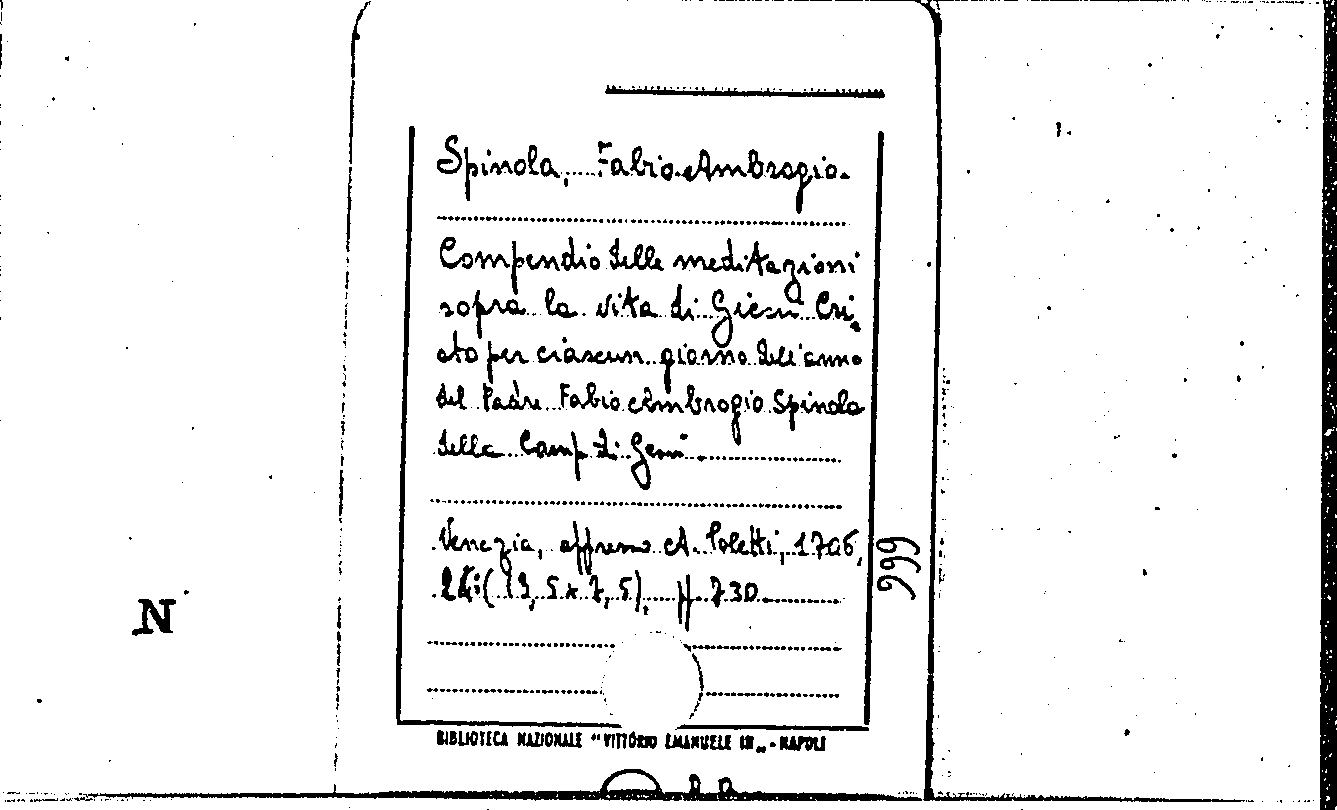 Spinola, Fabio Ambrogio.
Compendio delle meditazioni
sopra la vita di Giesu Cri
sto per ciascun giorno dell'anno
del Padre Fabio Ambrogio Spinola
della Comp. di Gesù.
Venezia, appresso A. Poletti, 1706,
24i( 13,5 x 7,5), pp 730
999
N
BIBLIOTECA NAZIONALE "VITTORIO EMANUELE III„ - NAPOLI